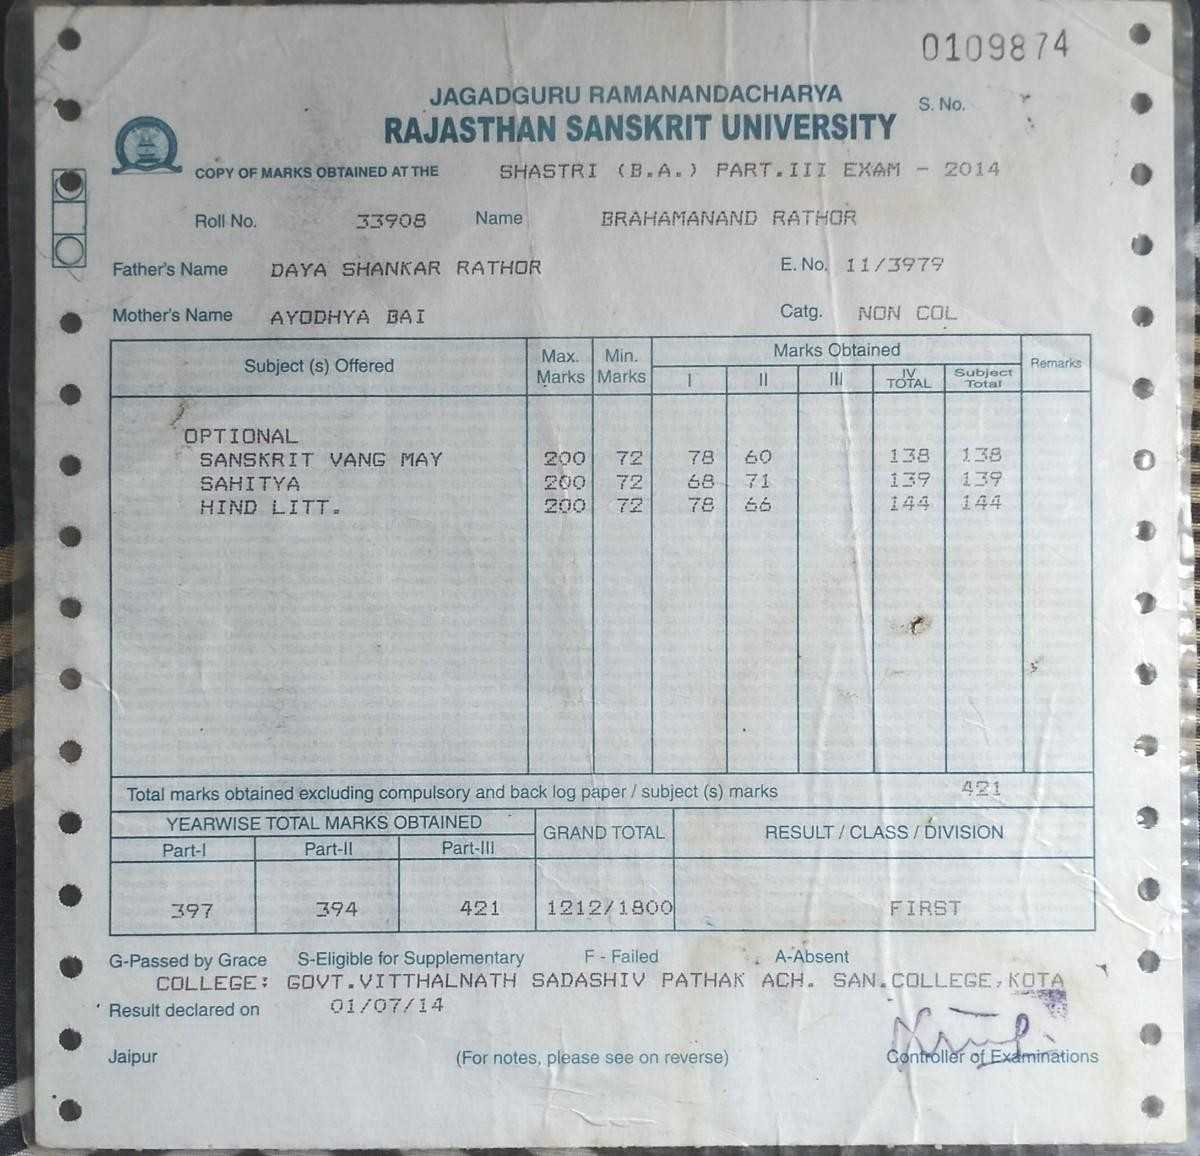 0109874
JAGADGURU RAMANANDACHARYA
S. No.
RAJASTHAN SANSKRIT UNIVERSITY
COPY OF MARKS OBTAINED AT THE SHASTRI (B.A.) PART.III EXAM - 2014
Roll No. 33908 Name BRAHAMANAND RATHOR
Father's Name DAYA SHANKAR RATHOR E. No. 11/3979
Mother's Name AYODHYA BAI Catg. NON COL
Subject (s) Offered Max. Marks Min. Marks Marks Obtained Remarks
I II III IV TOTAL Subject Total
OPTIONAL
SANSKRIT VANG MAY 200 72 78 60 138 138
SAHITYA 200 72 68 71 139 139
HIND LITT. 200 72 78 66 144 144
Total marks obtained excluding compulsory and back log paper / subject (s) marks 421
YEARWISE TOTAL MARKS OBTAINED GRAND TOTAL RESULT / CLASS / DIVISION
Part-I Part-II Part-III
397 394 421 1212/1800 FIRST
G-Passed by Grace S-Eligible for Supplementary F - Failed A-Absent
COLLEGE: GOVT.VITTHALNATH SADASHIV PATHAK ACH. SAN.COLLEGE,KOTA
Result declared on 01/07/14
Jaipur (For notes, please see on reverse) Controller of Examinations